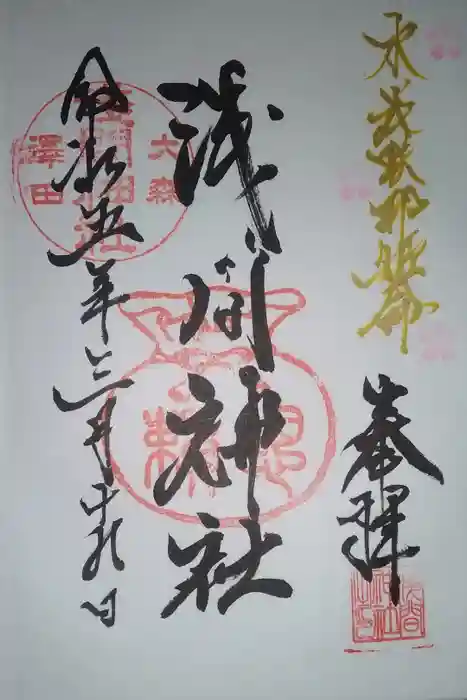 木花咲耶姫命
奉拝
浅間神社
令和五年三月廿九日
大森
澤田
浅間神社